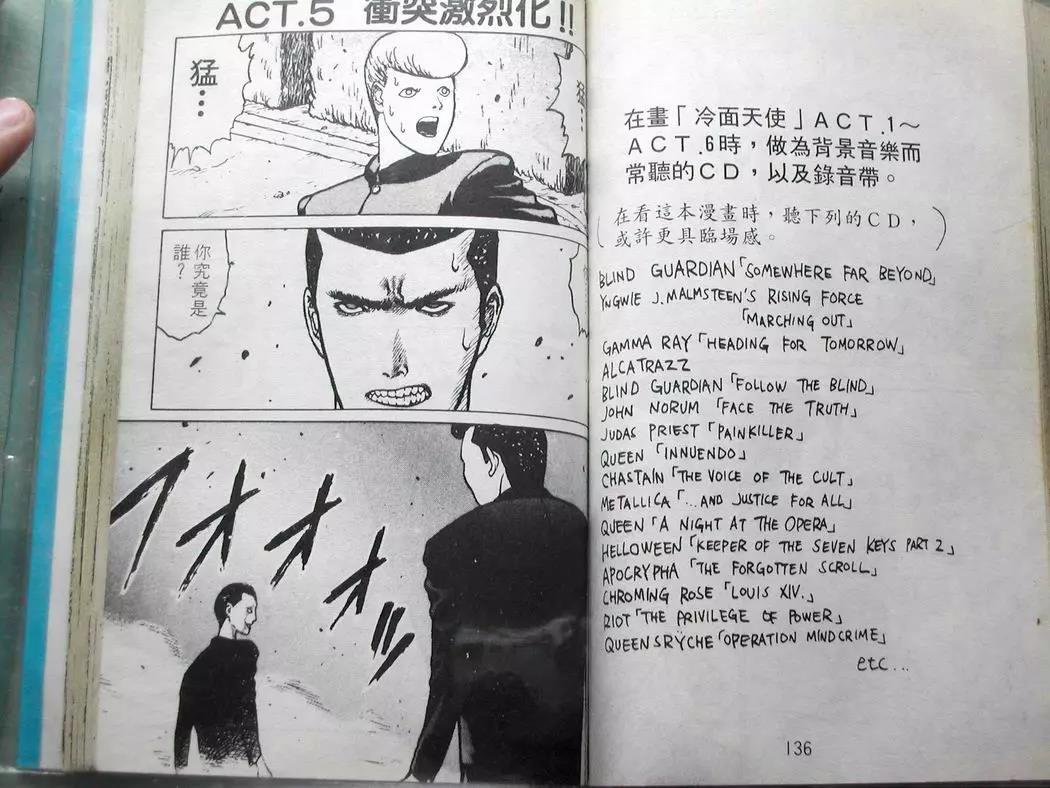 ACT.5 衝突激烈化!!
猛…
你究竟是
誰?
オオオオッ
在畫「冷面天使」ACT.1~
ACT.6時，做為背景音樂而
常聽的CD，以及錄音帶。
(在看這本漫畫時，聽下列的CD，
或許更具臨場感。)
BLIND GUARDIAN「SOMEWHERE FAR BEYOND」
YNGWIE J.MALMSTEEN'S RISING FORCE
「MARCHING OUT」
GAMMA RAY「HEADING FOR TOMORROW」
ALCATRAZZ
BLIND GUARDIAN「FOLLOW THE BLIND」
JOHN NORUM「FACE THE TRUTH」
JUDAS PRIEST「PAINKILLER」
QUEEN「INNUENDO」
CHASTAIN「THE VOICE OF THE CULT」
METALLICA「...AND JUSTICE FOR ALL」
QUEEN「A NIGHT AT THE OPERA」
HELLOWEEN「KEEPER OF THE SEVEN KEYS PART 2」
APOCRYPHA「THE FORGOTTEN SCROLL」
CHROMING ROSE「LOUIS XIV.」
RIOT「THE PRIVILEGE OF POWER」
QUEENSRŸCHE「OPERATION MINDCRIME」
etc...
136